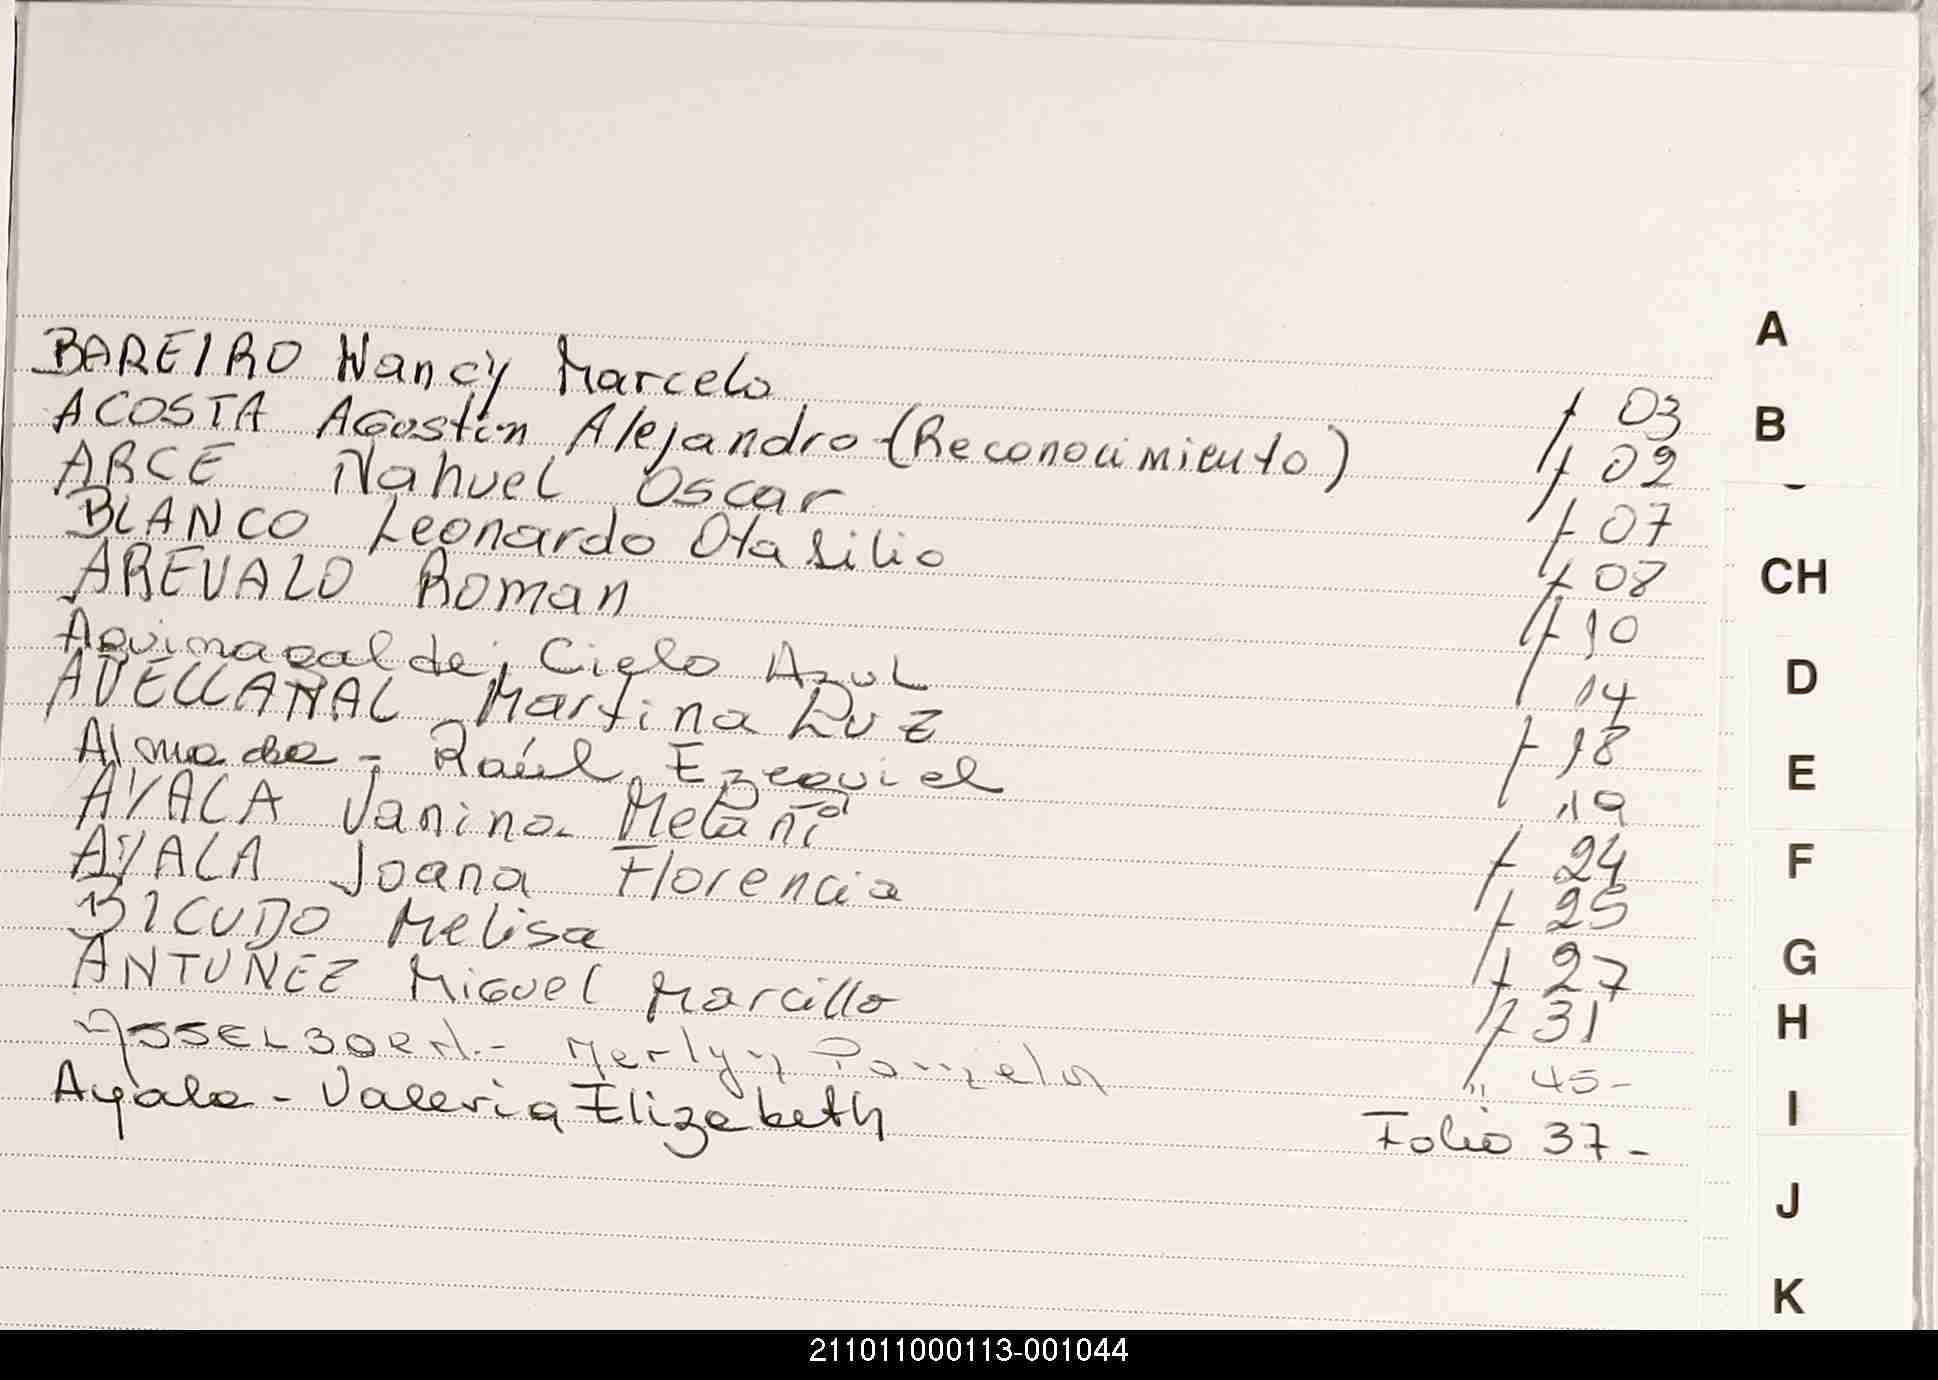 BAREIRO Nancy Marcelo f 03
ACOSTA Agustin Alejandro (Reconocimiento) f 02
ARCE Nahuel Oscar f 07
BLANCO Leonardo Otasilio f 08
AREVALO Roman f 10
Aguinagalde, Cielo Azul 14
AVELLANAL Martina Luz f 18
Almada - Raúl Ezequiel 19
AYALA Janina Melani f 24
AYALA Joana Florencia f 25
BICUDO Melisa f 27
ANTUNEZ Miguel Marcillo f 31
Merlyn 45-
Ayala - Valeria Elizabeth Folio 37-
A
B
CH
D
E
F
G
H
I
J
K
211011000113-001044